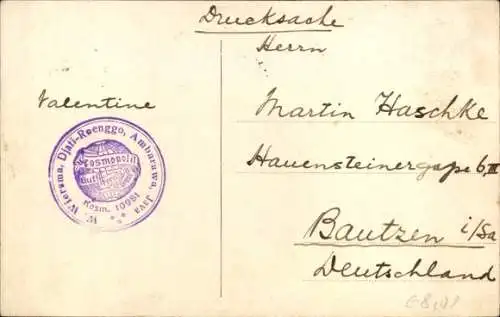 Drucksache
Herrn
Valentine
Martin Haschke
Hauensteinergasse 6, III
Bautzen i/Sa
Deutschland
W. Wiersma, Djati-Roenggo, Ambarawa, Java
Kosmopolit
Kosm. 10081